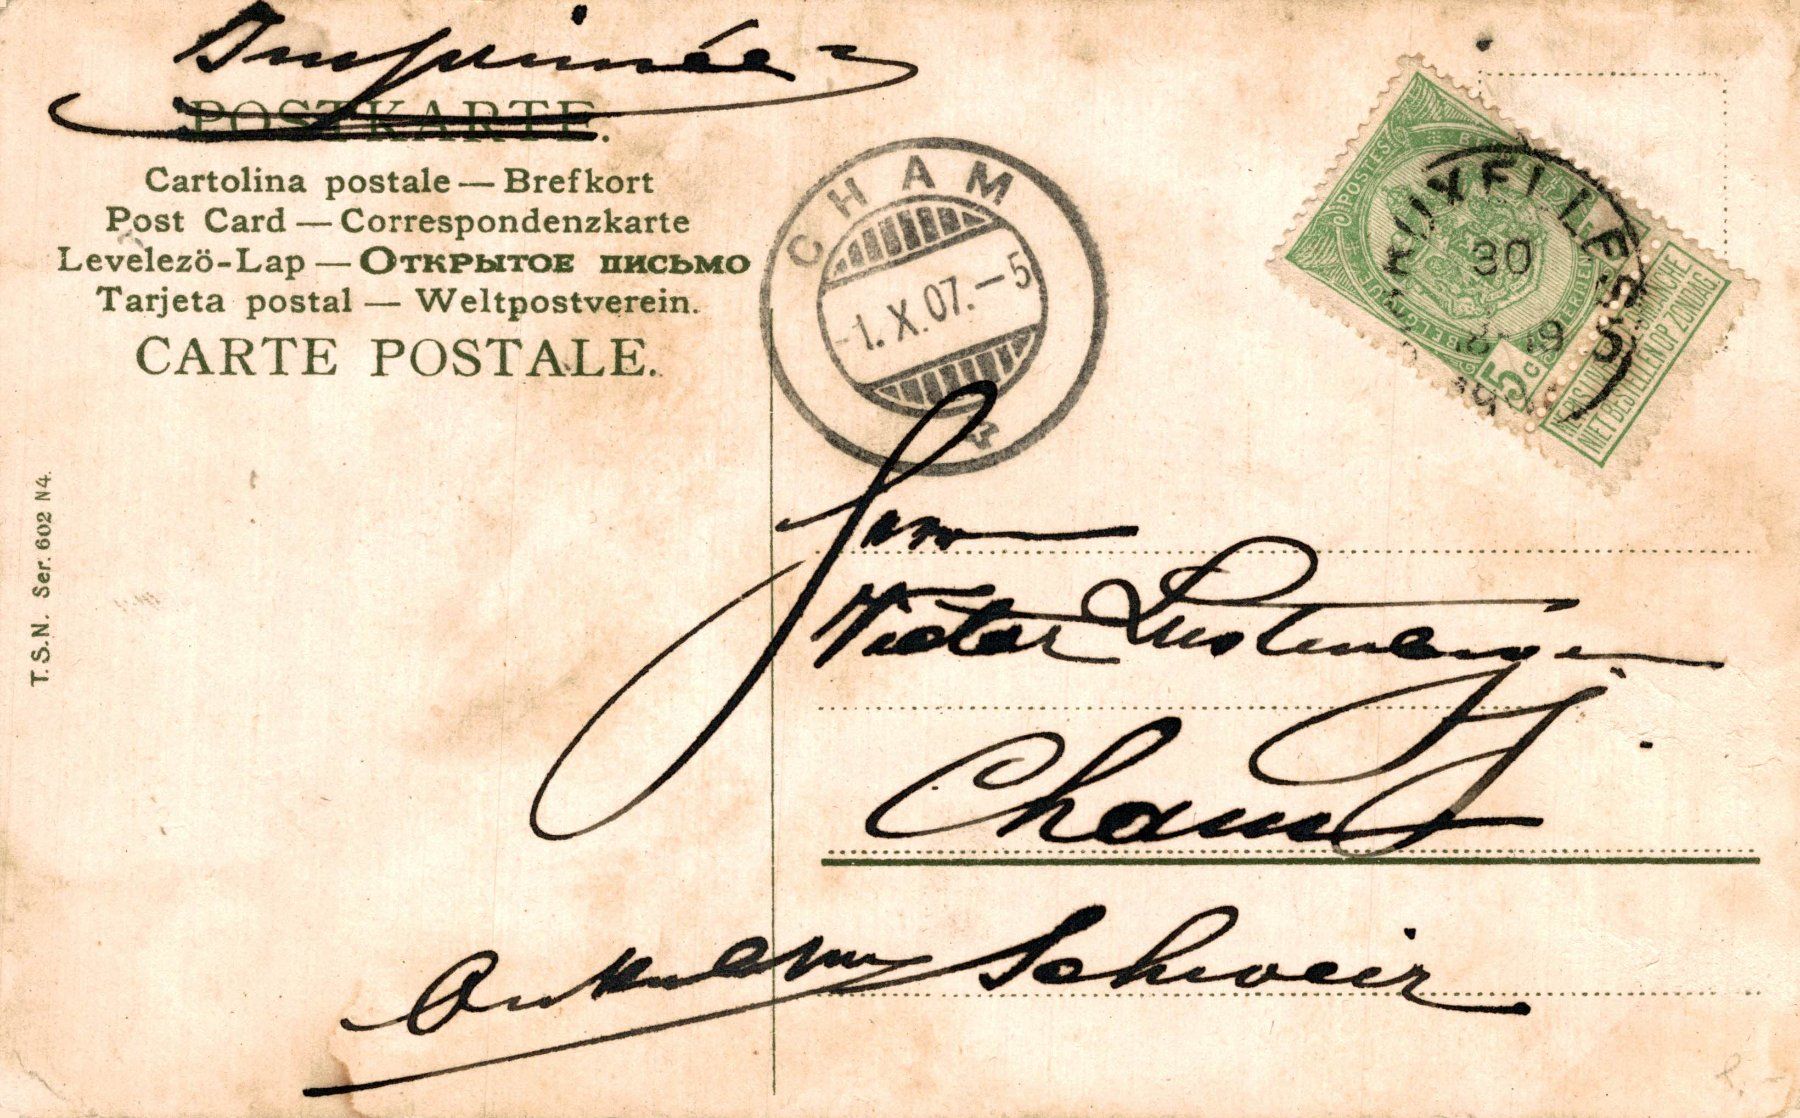 Imprimée
POSTKARTE.
Cartolina postale — Brefkort
Post Card — Correspondenzkarte
Levelezö-Lap — Открытое письмо
Tarjeta postal — Weltpostverein.
CARTE POSTALE.
T.S.N. Ser. 602 N4.
CHAM
-1.X.07.-5
POSTES
BELGIQUE
5 c
BRUXELLES 5
30
18-19
NIET BESTELLEN OP ZONDAG.
Herrn
Victor Lustenberger
Cham
Schweiz